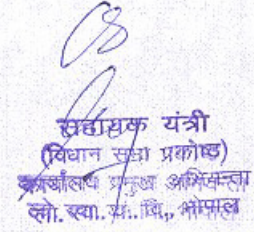 सहायक यंत्री
(विधान सभा प्रकोष्ठ)
कार्यालय प्रमुख अभियन्ता
लो. स्वा. यां. वि., भोपाल